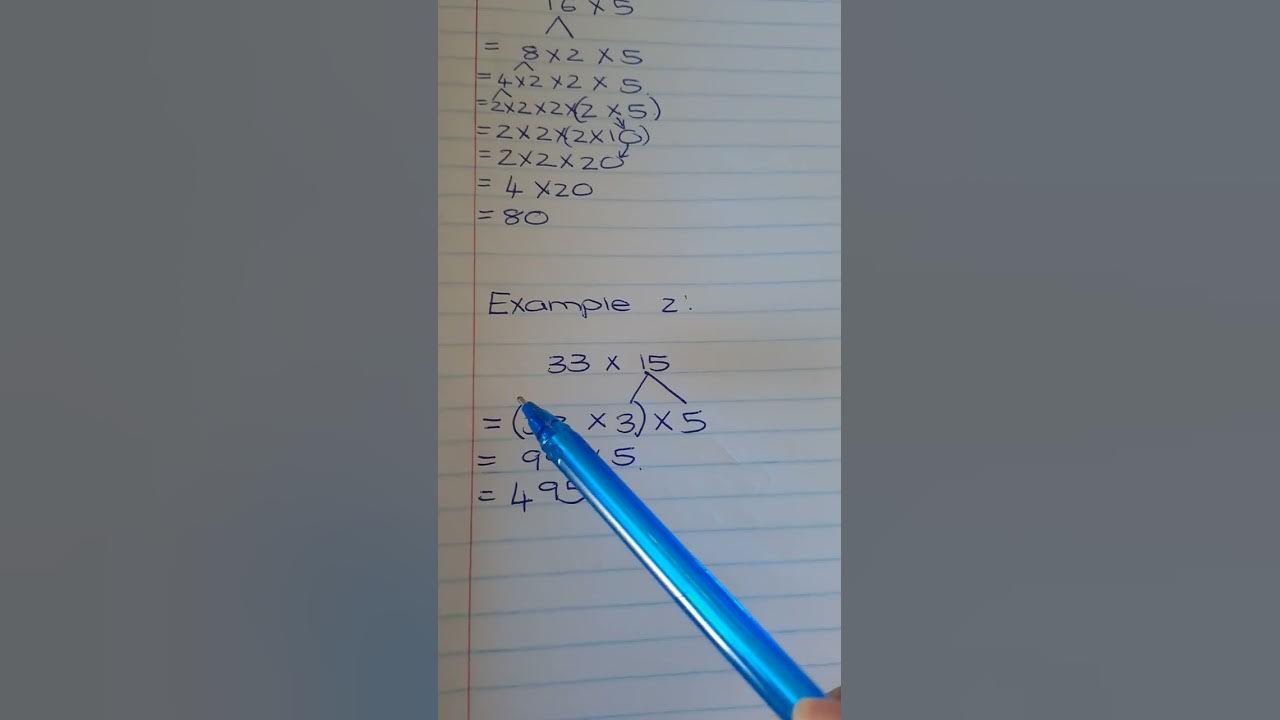 16 × 5
= 8 × 2 × 5
= 4 × 2 × 2 × 5
= 2 × 2 × 2 × (2 × 5)
= 2 × 2 × (2 × 10)
= 2 × 2 × 20
= 4 × 20
= 80
Example 2:
33 × 15
= ( × 3) × 5
= 5
= 495